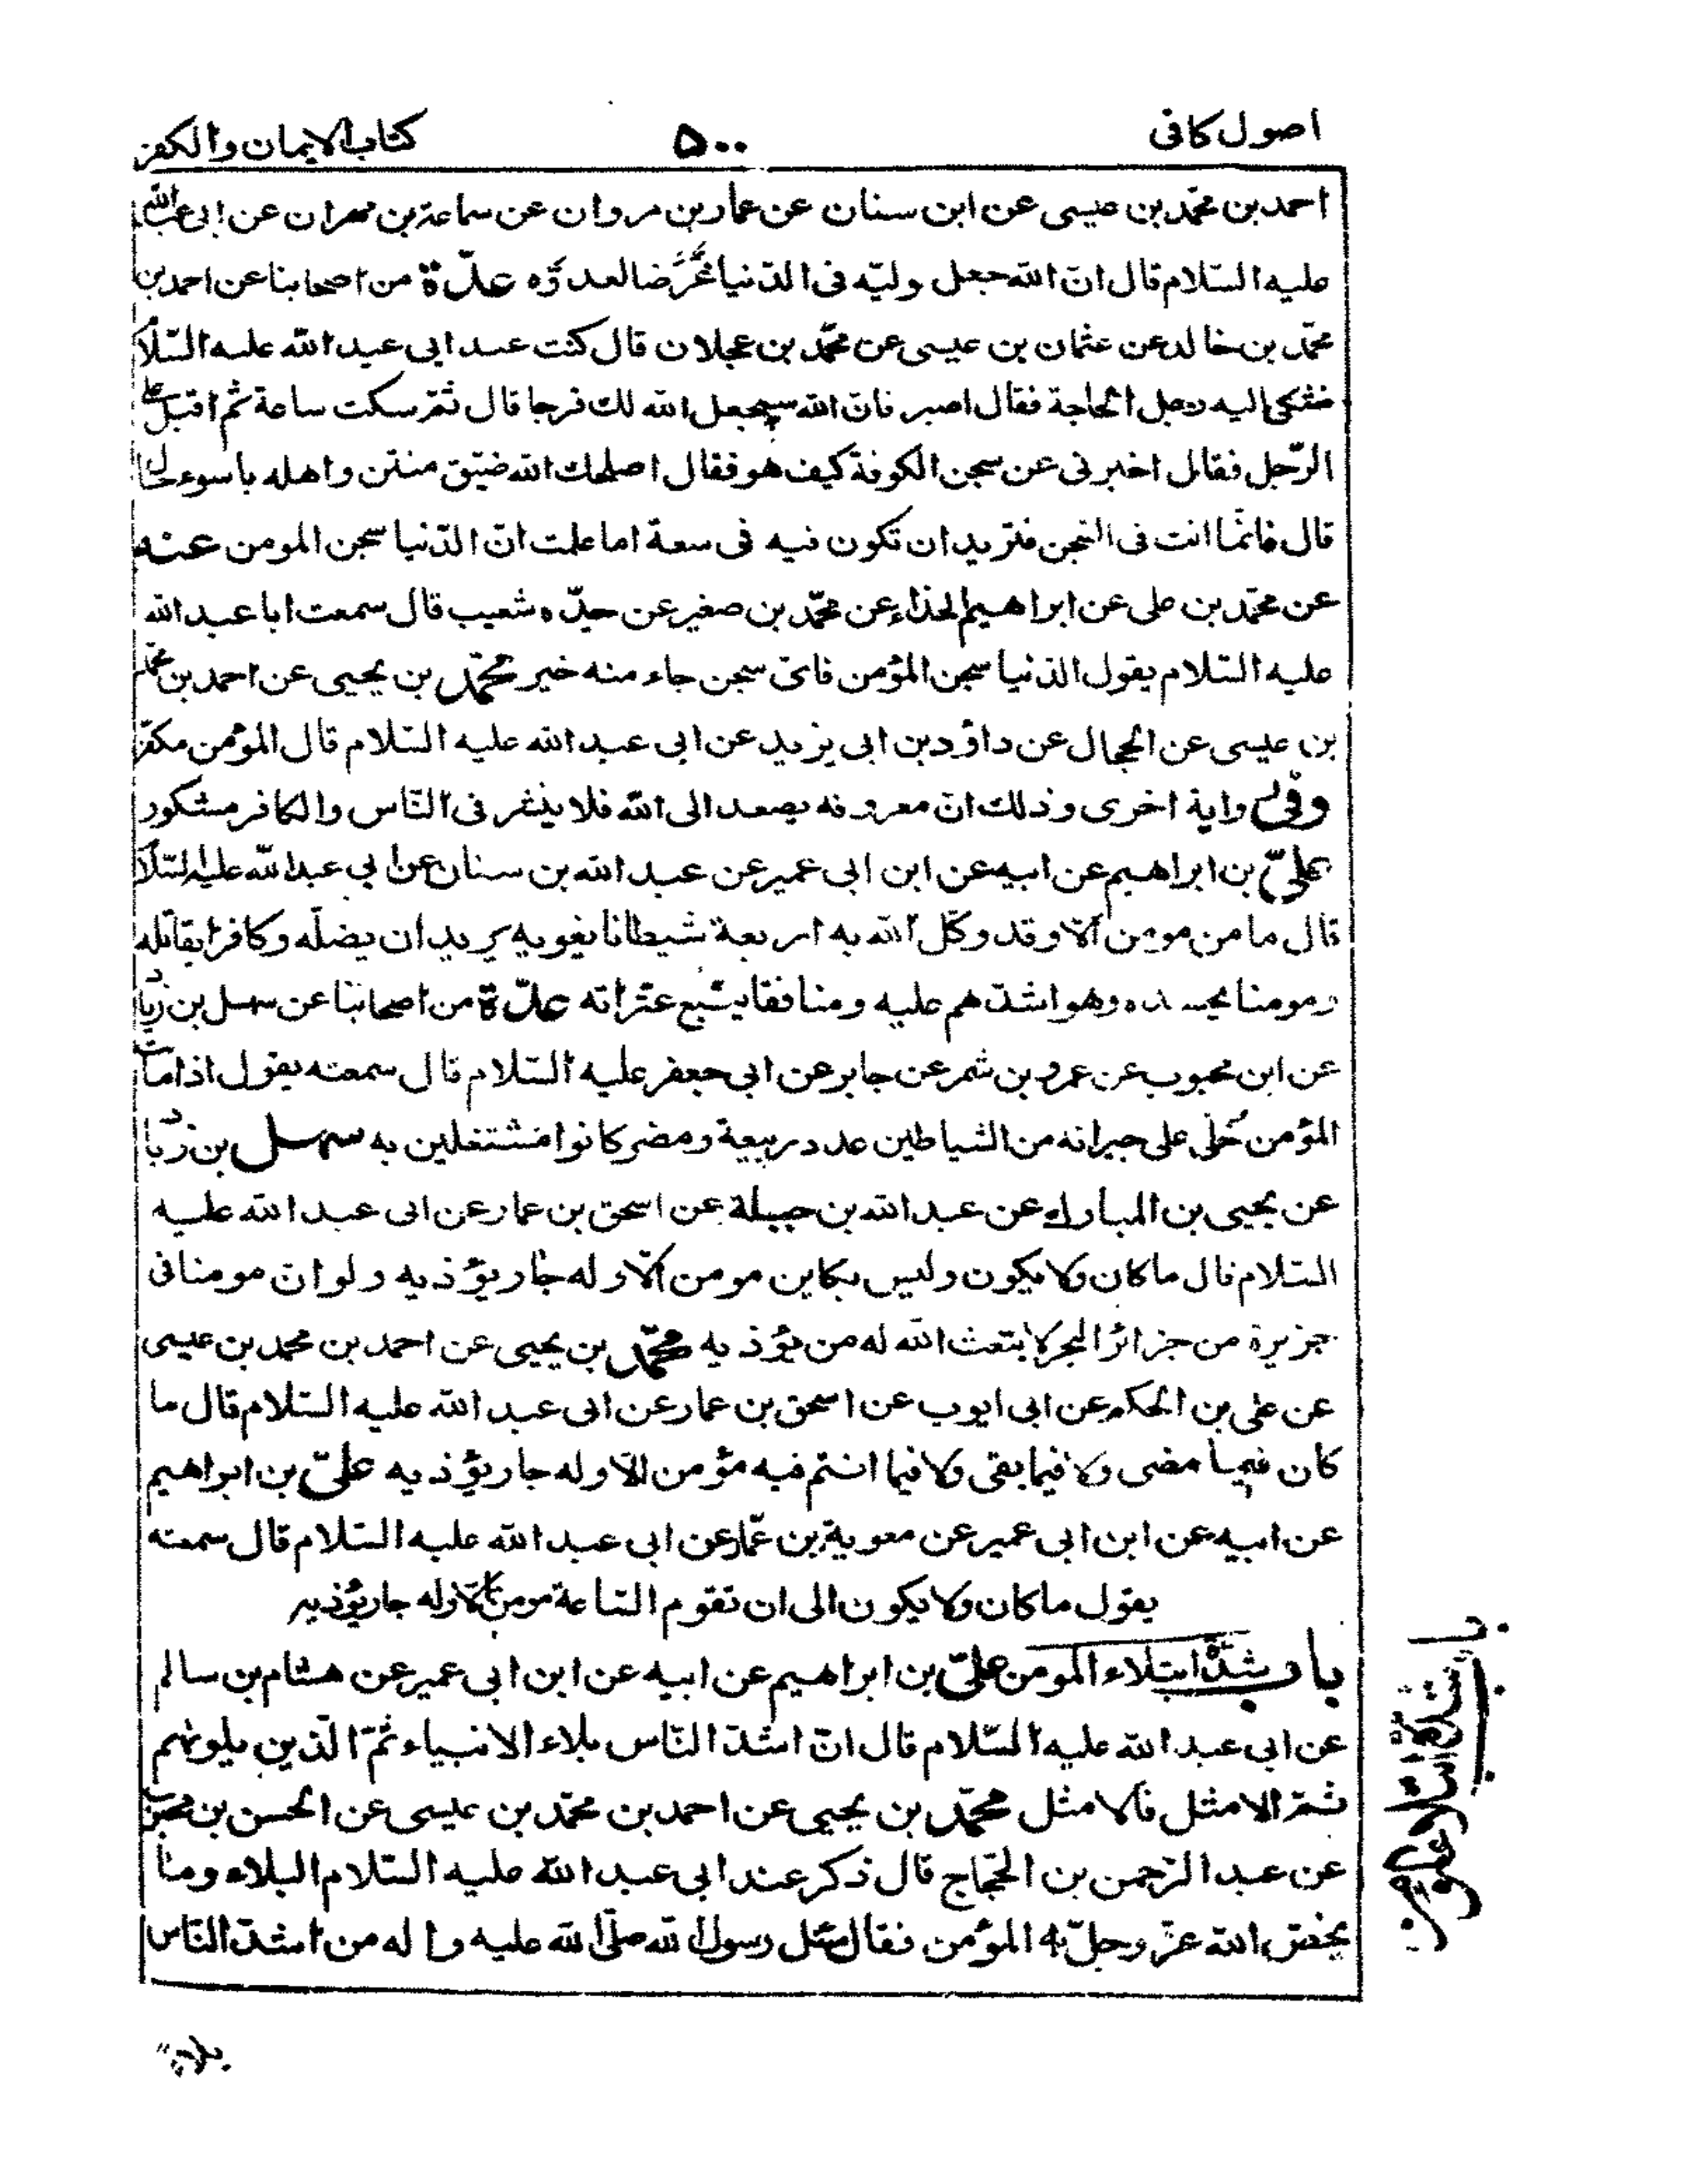 اصول كافى ٥٠٠ كتاب الايمان والكفر
احمد بن محمّد بن عيسى عن ابن سنان عن عمار بن مروان عن سماعة بن مهران عن ابى عبد الله
عليه السّلام قال انّ الله جعل وليّه فى الدّنيا غرضا لعدوّه عدّة من اصحابنا عن احمد بن
محمّد بن خالد عن عثمان بن عيسى عن محمّد بن عجلان قال كنت عند ابى عبد الله عليه السّلا
فشكى اليه رجل الحاجة فقال اصبر فانّ الله سيجعل الله لك فرجا قال ثمّ سكت ساعة ثم اقبل على
الرّجل فقال اخبرنى عن سجن الكوفة كيف هو فقال اصلحك الله ضيّق منتن واهله باسوء حال
قال فانّما انت فى السّجن فتريد ان تكون فيه فى سعة اما علمت انّ الدّنيا سجن المومن عنه
عن محمّد بن على عن ابراهيم الحذاء عن محمّد بن صغير عن جدّه شعيب قال سمعت ابا عبد الله
عليه السّلام يقول الدّنيا سجن المؤمن فاىّ سجن جاء منه خير محمّد بن يحيى عن احمد بن محمّد
بن عيسى عن الحجال عن داؤد بن ابى يزيد عن ابى عبد الله عليه السّلام قال المؤمن مكفّر
وفى رواية اخرى وذلك انّ معروفه يصعد الى الله فلا ينشر فى النّاس والكافر مشكور
علىّ بن ابراهيم عن ابيه عن ابن ابى عمير عن عبد الله بن سنان عن ابى عبد الله عليه السّلا
قال ما من مومن الّا وقد وكّل الله به اربعة شيطانا يغويه يريد ان يضلّه وكافرا يقاتله
ومومنا يحسده وهو اشدّهم عليه ومنافقا يتتبع عثراته عدّة من اصحابنا عن سهل بن زياد
عن ابن محبوب عن عمرو بن شمر عن جابر عن ابى جعفر عليه السّلام قال سمعته يقول اذا مات
المؤمن خلّى على جيرانه من الشياطين عدد ربيعة ومضر كانوا مشتغلين به سهل بن زياد
عن يحيى بن المبارك عن عبد الله بن جبلة عن اسحق بن عمار عن ابى عبد الله عليه
السّلام قال ما كان ولا يكون وليس بكاين مومن الّا وله جار يؤذيه ولو انّ مومنا فى
جزيرة من جزائر البحر لابتعث الله له من يؤذيه محمّد بن يحيى عن احمد بن محمد بن عيسى
عن على بن الحكم عن ابى ايوب عن اسحق بن عمار عن ابى عبد الله عليه السّلام قال ما
كان فيما مضى ولا فيما بقى ولا فيما انتم فيه مؤمن الّا وله جار يؤذيه علىّ بن ابراهيم
عن ابيه عن ابن ابى عمير عن معوية بن عمّار عن ابى عبد الله عليه السّلام قال سمعته
يقول ما كان ولا يكون الى ان تقوم السّاعة مومن الّا وله جار يؤذيه
باب شدّة ابتلاء المومن علىّ بن ابراهيم عن ابيه عن ابن ابى عمير عن هشام بن سالم
عن ابى عبد الله عليه السّلام قال انّ اشدّ النّاس بلاء الانبياء ثمّ الّذين يلونهم
ثمّ الامثل فالامثل محمّد بن يحيى عن احمد بن محمّد بن عيسى عن الحسن بن محبوب
عن عبد الرّحمن بن الحجّاج قال ذكر عند ابى عبد الله عليه السّلام البلاء وما
يخصّ الله عزّ وجلّ به المؤمن فقال سئل رسول الله صلّى الله عليه واله من اشدّ النّاس
باب
شدّة ابتلاء المؤمن
بلاء